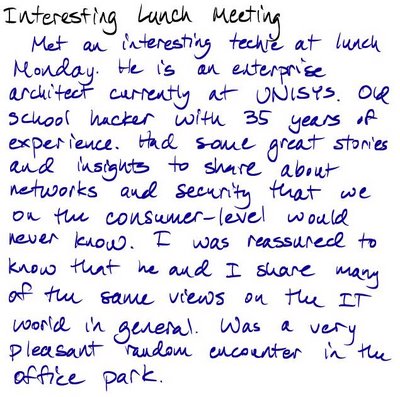 Interesting Lunch Meeting
Met an interesting techie at lunch
Monday. He is an enterprise
architect currently at UNISYS. Old
school hacker with 35 years of
experience. Had some great stories
and insights to share about
networks and security that we
on the consumer-level would
never know. I was reassured to
know that he and I share many
of the same views on the IT
world in general. Was a very
pleasant random encounter in the
office park.